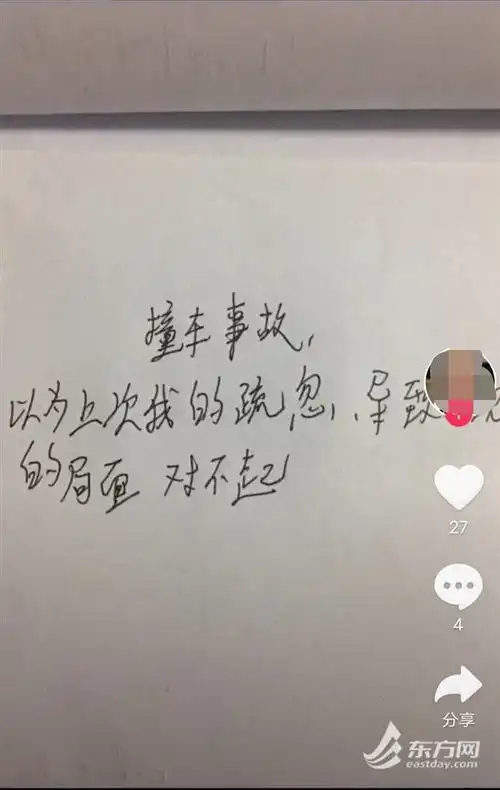 撞车事故，
以为上次我的疏忽，导致
的局面 对不起
27
4
分享
东方网
eastday.com